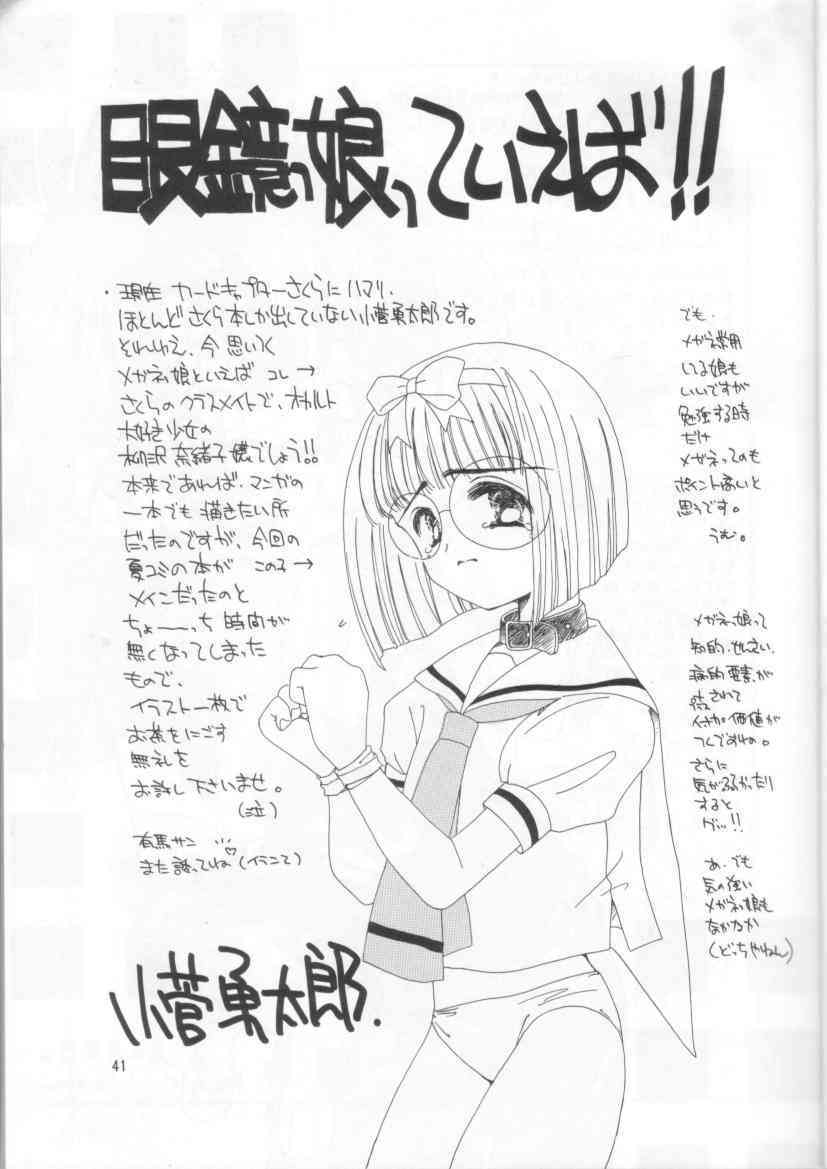 眼鏡っ娘っていえば!!
・現在 カードキャプターさくらにハマリ、
ほとんどさくら本しか出していない小菅勇太郎です。
それゆえ、今 思いつく
メガネっ娘といえば コレ →
さくらのクラスメイトで、オカルト
大好き少女の
柳沢 奈緒子嬢でしょう!!
本来であれば、マンガの
一本でも 描きたい所
だったのですが、今回の
夏コミの本が この子 →
メインだったのと
ちょーーっち 時間が
無くなってしまった
もので、
イラスト一枚で
お茶をにごす
無礼を
お許し下さいませ。
(泣)
有馬サン…♡
また誘ってね(イラこて)
小菅勇太郎.
でも、
メガネ常用
している娘も
いいですが
勉強する時
だけ
メガネってのも
ポイント高いと
思うです。
うむ。
メガネっ娘って
知的、せんさい、
病的要素が
されて
付加価値が
つくですわね。
さらに
気が弱かったり
すると
グッ…!!
あ、でも
気の強い
メガネっ娘も
なかなか
(どっちやねん)
41